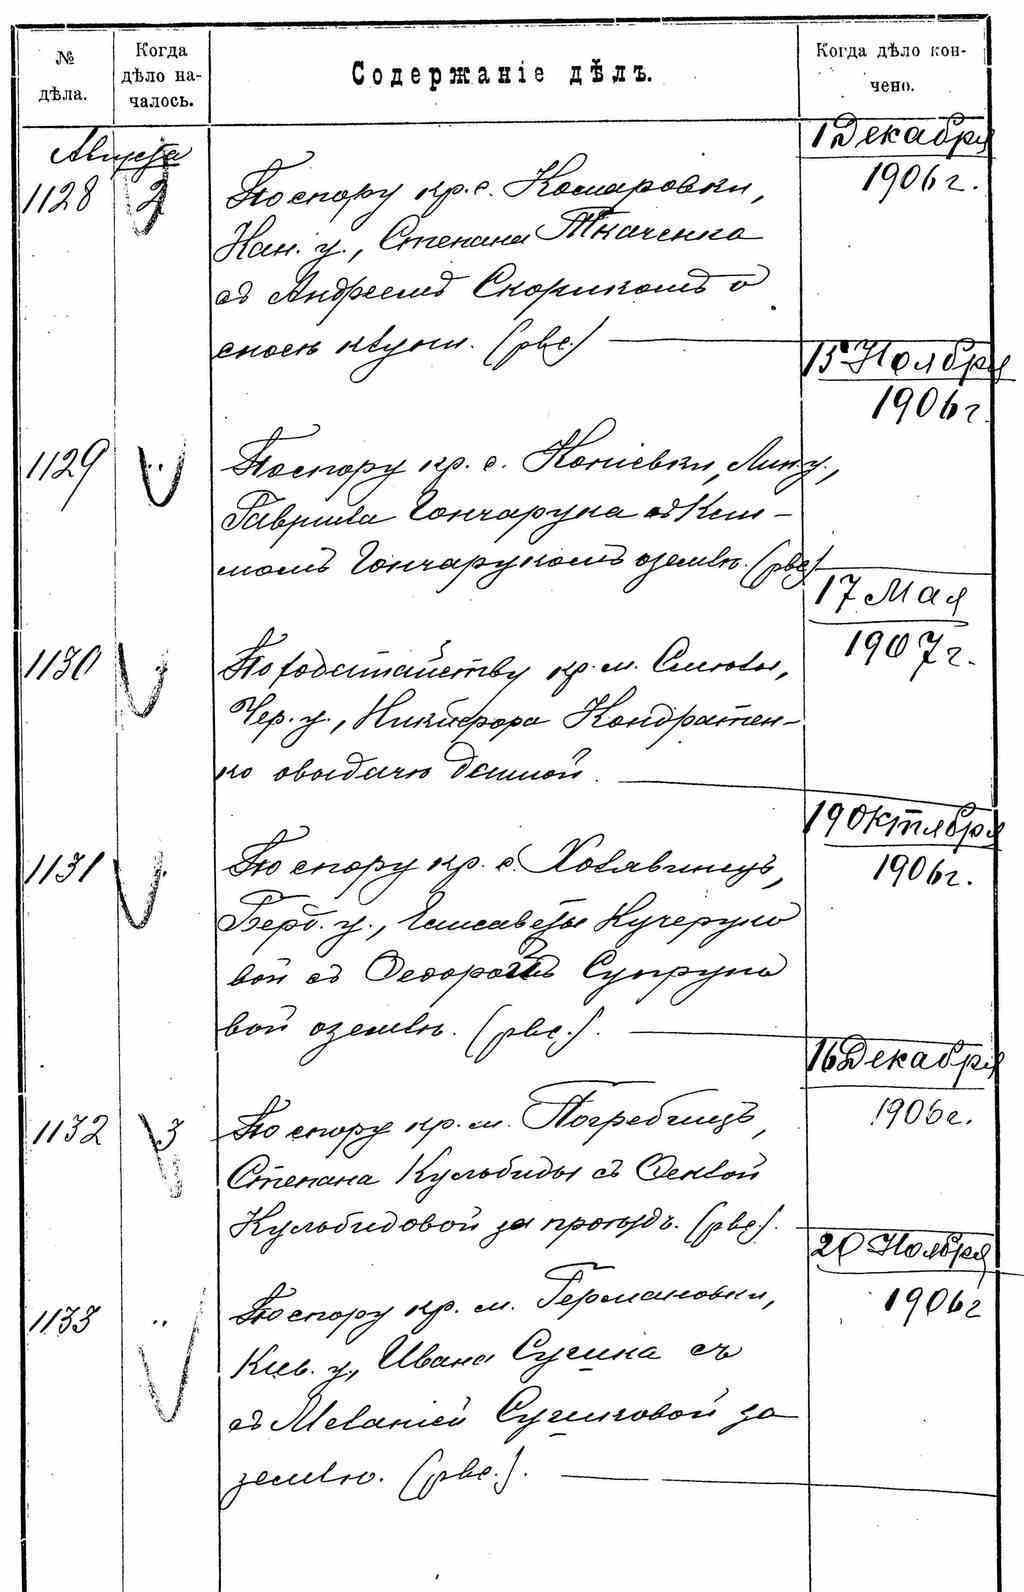 № дѣла.
Когда дѣло на-
чалось.
Содержаніе дѣлъ.
Когда дѣло кон-
чено.
Августа
1128 2 По спору кр. с. Комаровки,
Кан. у., Степана Ткаченка
съ Андреемъ Скорикомъ о
сносѣ клуни. (рвс.)
1 Декабря
1906 г.
1129 " По спору кр. с. Копіевки, Лип. у.,
Гаврила Гончарука съ Кли-
момъ Гончарукомъ о землѣ. (рвс.)
15 Ноября
1906 г.
1130 " По ходатайству кр. м. Смѣлы,
Чер. у., Никифора Кондратен-
ко о выдачѣ данной.
17 Мая
1907 г.
1131 " По спору кр. с.
Берд. у., Елисаветы Кучеруко
вой съ Федорой Супруно
вой о землѣ. (рвс.).
19 Октября
1906 г.
1132 3 По спору кр. м. Погребищъ,
Степана Кульбиды съ Феклой
Кульбидовой за проѣздъ. (рвс.).
16 Декабря
1906 г.
1133 " По спору кр. м. Германовки,
Кіев. у., Ивана Сушка съ
съ Меланіей Сушковой за
землю. (рвс.).
20 Ноября
1906 г